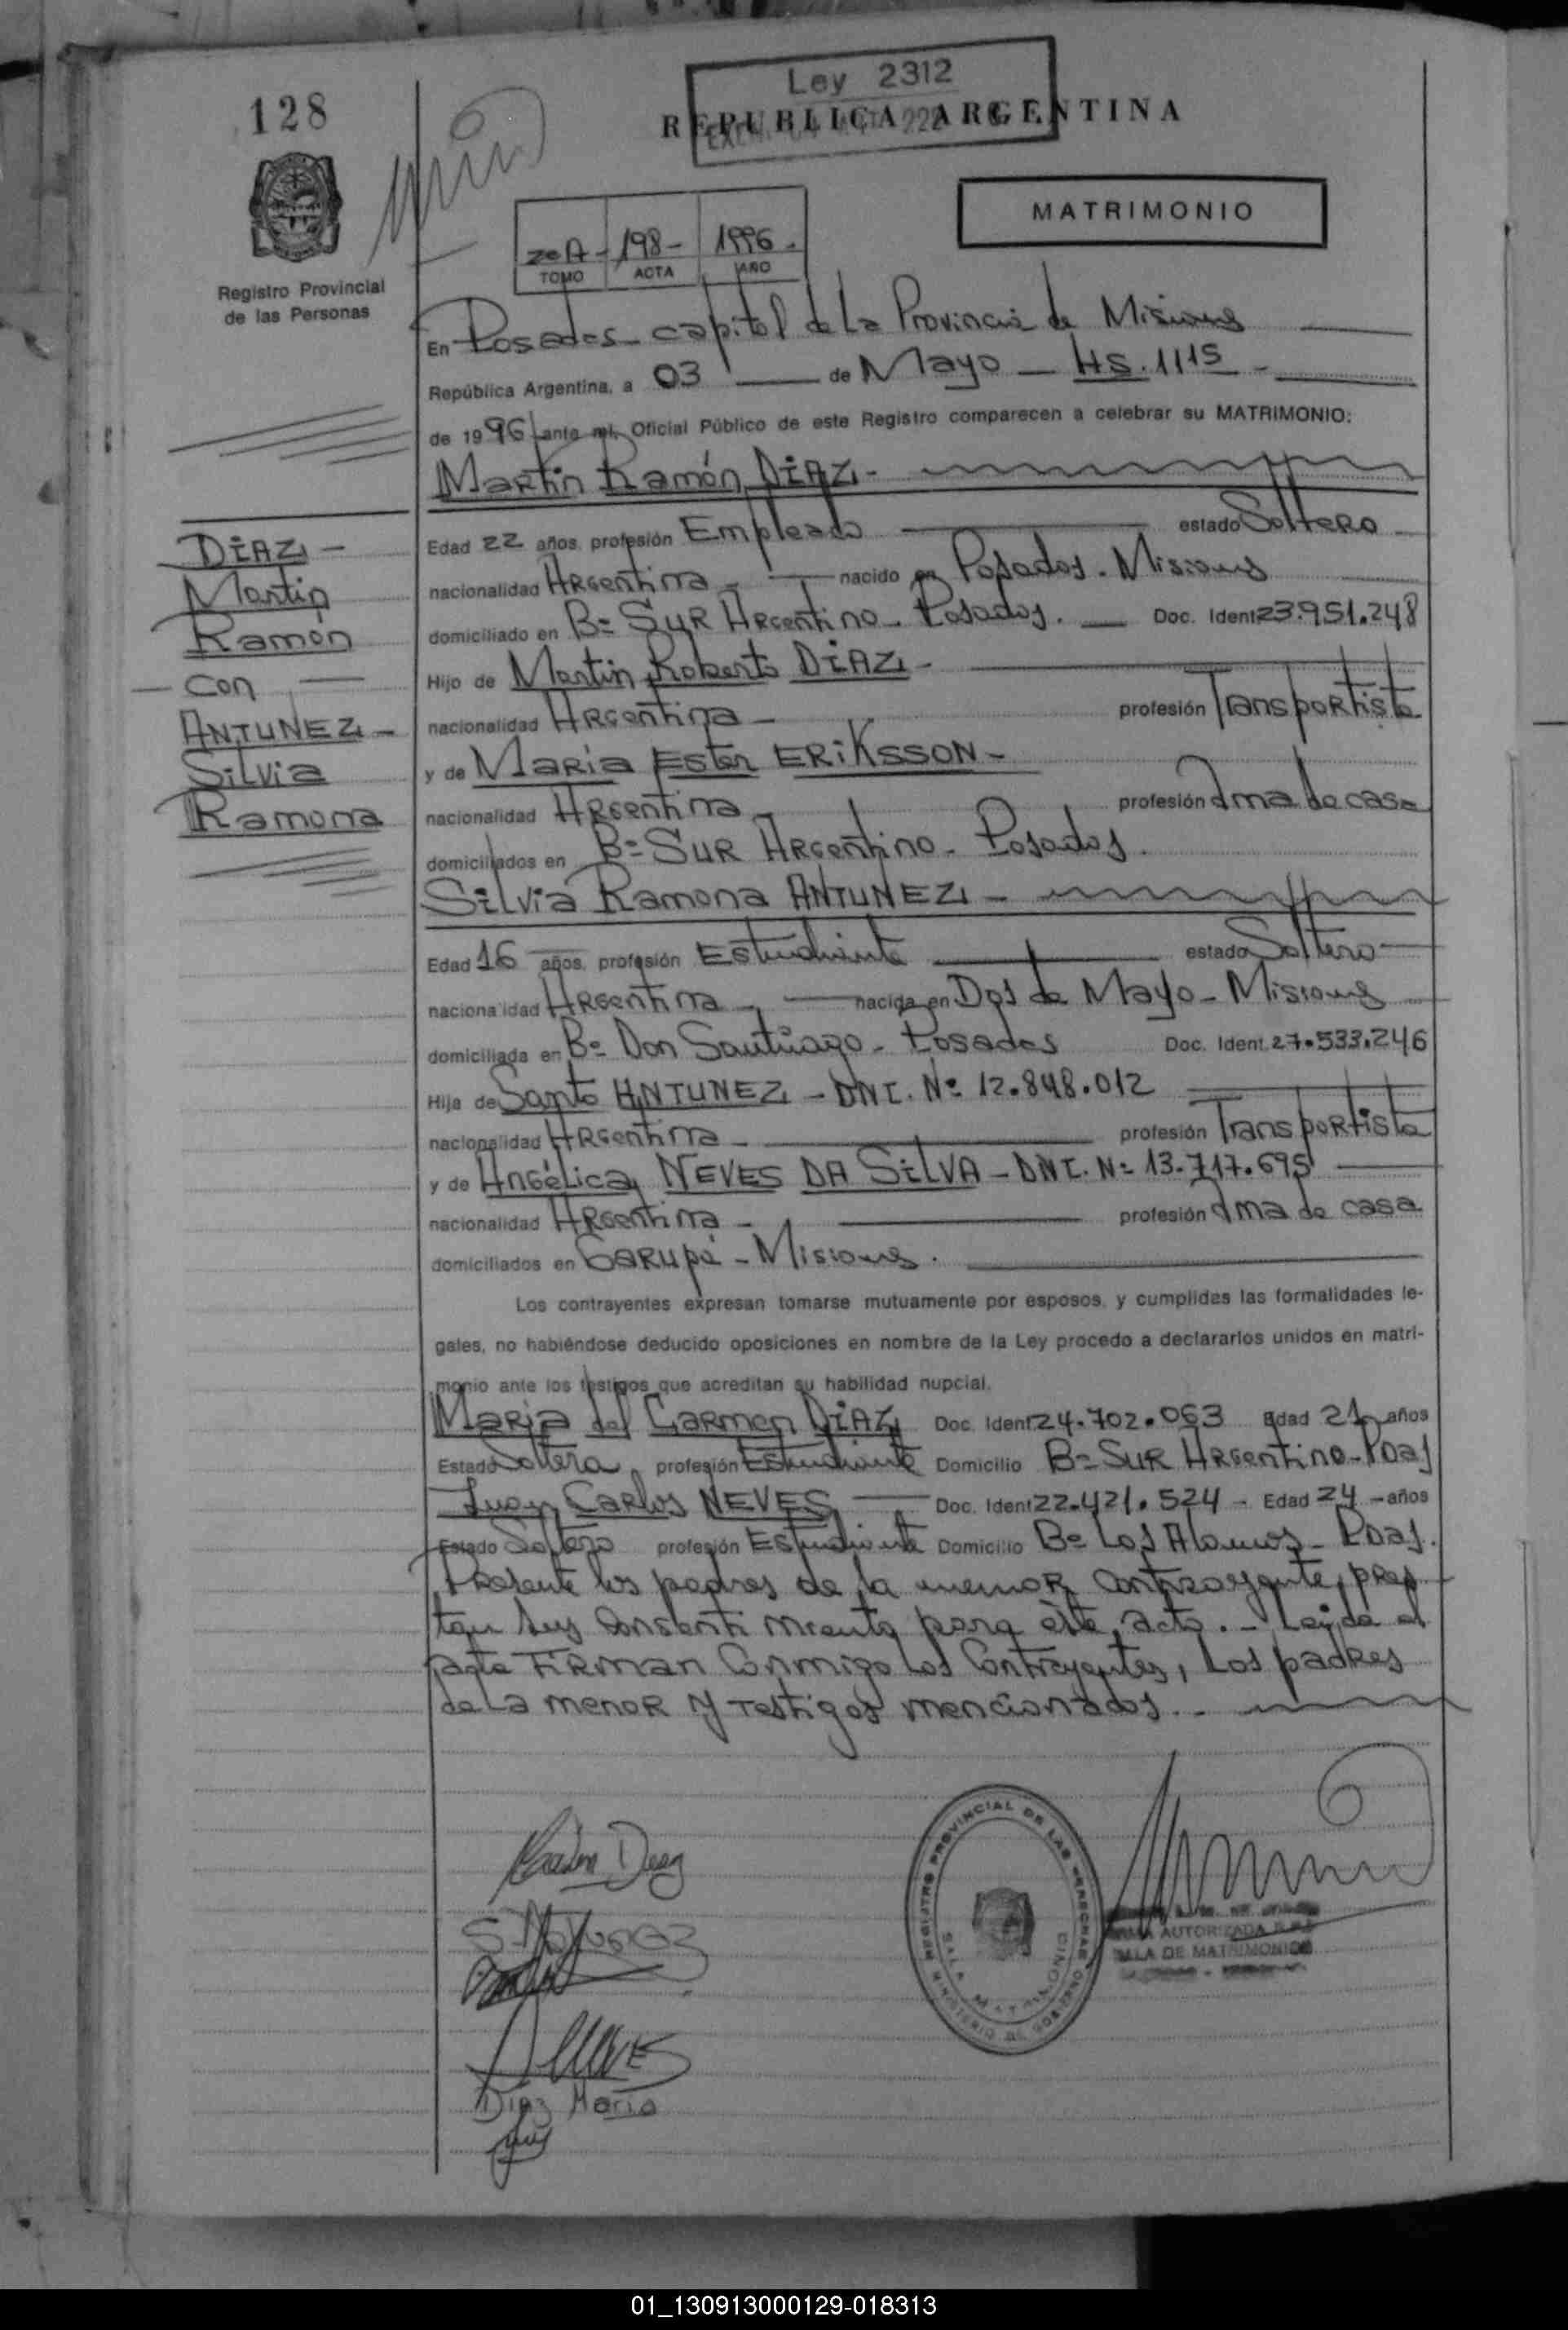 128
Ley 2312
REPUBLICA ARGENTINA
MATRIMONIO
198- 1996.
TOMO ACTA AÑO
Registro Provincial
de las Personas
En Posadas - capital de La Provincia de Misiones
República Argentina, a 03 de Mayo - HS. 1115 -
de 1996 ante mí, Oficial Público de este Registro comparecen a celebrar su MATRIMONIO:
Martin Ramón DIAZ -
Edad 22 años, profesión Empleado estado Soltero
nacionalidad Argentina - nacido en Posadas - Misiones
domiciliado en Bº Sur Argentino - Posadas. Doc. Ident 23.951.248
Hijo de Martin Roberto DIAZ -
nacionalidad Argentina - profesión Transportista
y de Maria Ester ERIKSSON -
nacionalidad Argentina - profesión Ama de casa
domiciliados en Bº Sur Argentino - Posadas.
Silvia Ramona ANTUNEZ -
Edad 16 años, profesión Estudiante estado Soltera
nacionalidad Argentina - nacida en Dos de Mayo - Misiones
domiciliada en Bº Don Santiago - Posadas Doc. Ident. 27.533.246
Hija de Santo ANTUNEZ - DNI. Nº 12.848.012
nacionalidad Argentina - profesión Transportista
y de Angélica NEVES DA SILVA - DNI. Nº 13.717.695
nacionalidad Argentina - profesión Ama de casa
domiciliados en Garupá - Misiones.
Los contrayentes expresan tomarse mutuamente por esposos, y cumplidas las formalidades le-
gales, no habiéndose deducido oposiciones en nombre de la Ley procedo a declararlos unidos en matri-
monio ante los testigos que acreditan su habilidad nupcial.
Maria del Carmen DIAZ Doc. Ident 24.702.063 Edad 21 años
Estado Soltera, profesión Estudiante Domicilio Bº Sur Argentino - Pdas
Juan Carlos NEVES Doc. Ident 22.421.524 - Edad 24 - años
Estado Soltero profesión Estudiante Domicilio Bº Los Alamos - Pdas.
Presente los padres de la menor contrayente, pres
tan sus consentimiento para éste acto. - Leída el
acta Firman Conmigo los Contrayentes, Los padres
de La menor y testigos mencionados. -
DIAZ -
Martin
Ramón
- con -
ANTUNEZ -
Silvia
Ramona
REGISTRO PROVINCIAL DE LAS PERSONAS
MINISTERIO DE GOBIERNO
SALA MATRIMONIO
AUTORIZADA
SALA DE MATRIMONIOS
Diaz Maria
01_130913000129-018313